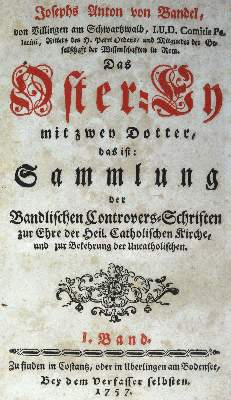 Josephs Anton von Bandel,
von Villingen am Schwartzwald, I.U.D. Comitis Pa-
latini, Ritters des H. Petri Ordens, und Mitgliedes der Ge-
sellschaft der Wissenschaften in Rom.
Das
Oster-Ey
mit zwey Dotter,
das ist:
Sammlung
der
Bandlischen Controvers-Schriften
zur Ehre der Heil. Catholischen Kirche,
und zur Bekehrung der Uncatholischen.
I. Band.
Zu finden in Costantz, oder in Uberlingen am Bodensee,
Bey dem Verfasser selbsten.
1757.